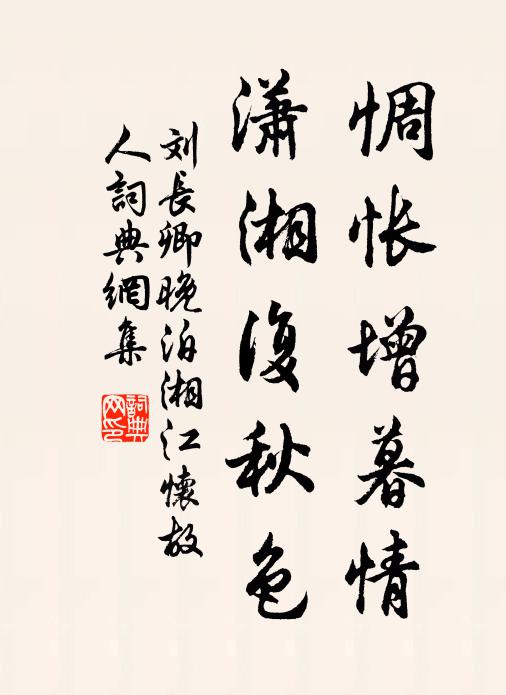 惆怅增暮情
潇湘复秋色
刘長卿晚泊湘江懷故
人詞典網集
詞典
网印